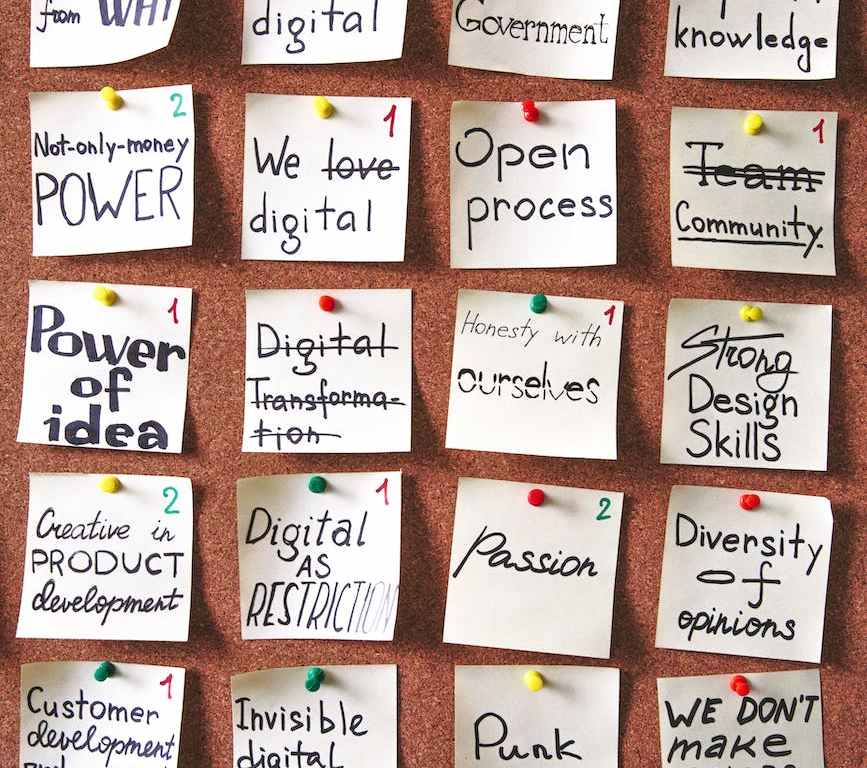 from WHY
digital
Government
knowledge
2
Not-only-money
POWER
1
We love
digital
Open
process
1
Team
Community.
1
Power
of
idea
Digital
Transforma-
tion
1
Honesty with
ourselves
Strong
Design
Skills
2
Creative in
PRODUCT
development
1
Digital
AS
RESTRICTION
2
Passion
Diversity
of
opinions
1
Customer
development
Invisible
digital
Punk
WE DON'T
make